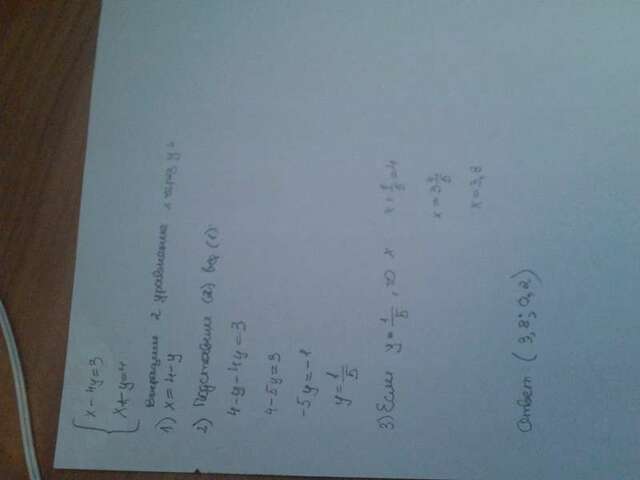 x - 4y = 3
x + y = 4
Выразим из 2 уравнения x через y
1) x = 4 - y
2) Подставим (2) в (1):
4 - y - 4y = 3
4 - 5y = 3
-5y = -1
y = 1/5
3) Если y = 1/5, то x
x + 1/5 = 4
x = 3 4/5
x = 3,8
Ответ (3,8; 0,2)